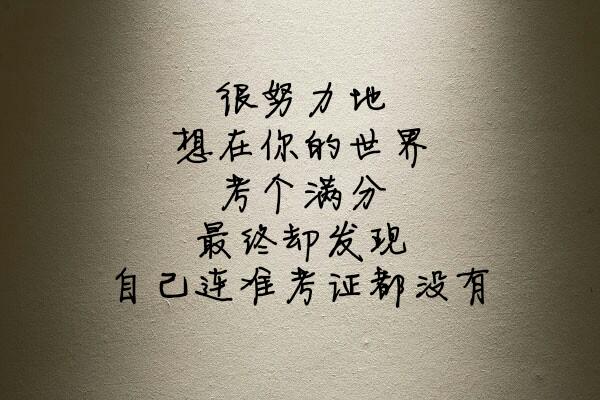 很努力地
想在你的世界
考个满分
最终却发现
自己连准考证都没有